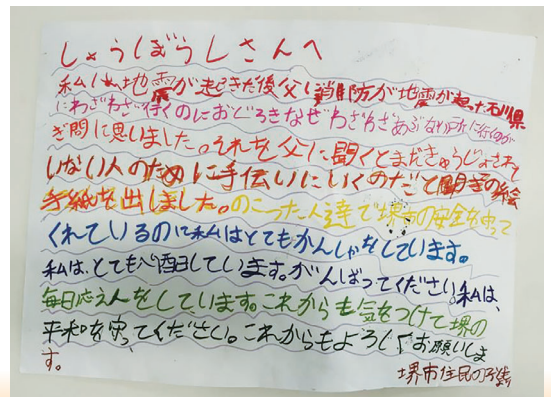 しょうぼうしさんへ
私は地震が起きた後父に消防が地震が起きた石川県
にわざわざ行くのにおどろきなぜわざわざあぶない所に行くのか
ぎ問に思いました。それを父に聞くとまだきゅうじょされて
いない人のために手伝いにいくのだと聞き
手紙を出しました。のこった人達で堺市の安全を守って
くれているのに私はとてもかんしゃをしています。
私は、とても心配しています。がんばってください。私は、
毎日応えんをしています。これからも気をつけて堺の
平和を守ってください。これからもよろしくお願いしま
す。
堺市住民の